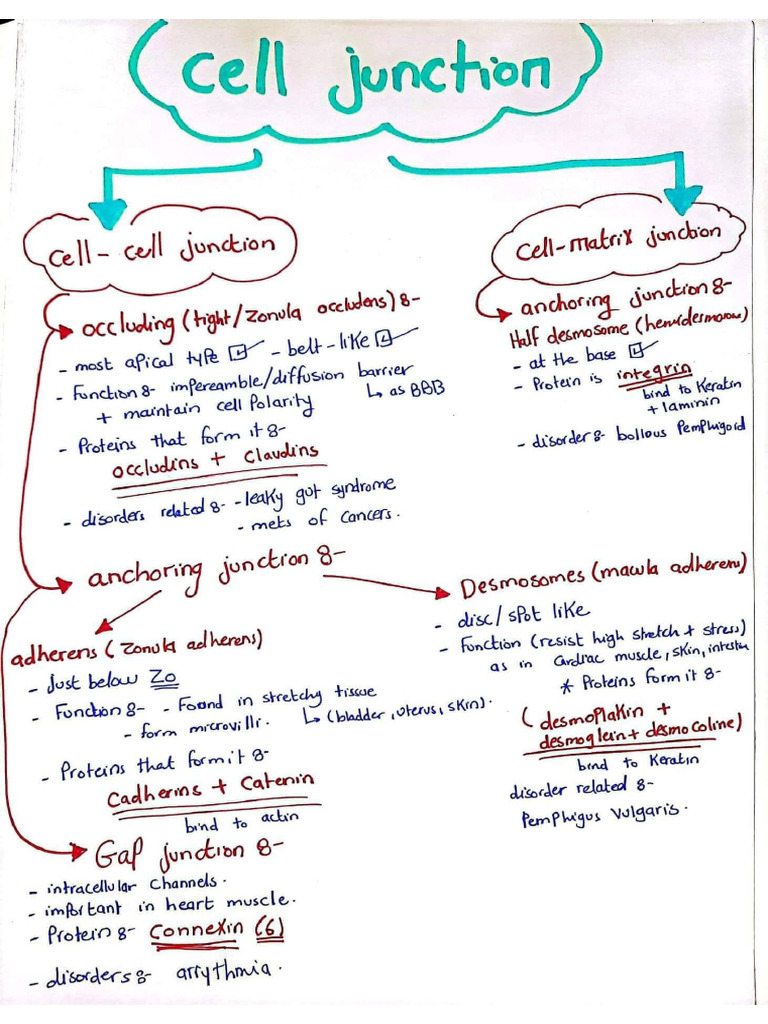 cell junction
cell-cell junction
occluding (tight/Zonula occludens) 8-
- most apical type
- belt-like
- Function 8- impereamble/diffusion barrier
↳ as BBB
+ maintain cell Polarity
- Proteins that form it 8-
occludins + Claudins
- disorders related 8- -leaky gut syndrome
- mets of cancers.
cell-matrix junction
anchoring junction 8-
Half desmosome (hemidesmosome)
- at the base
- Protein is integrin
bind to Keratin
+ laminin
- disorder 8- bollous Pemphigoid
anchoring junction 8-
adherens (Zonula adherens)
- Just below Zo
- Function 8- - Found in stretchy tissue
↳ (bladder, uterus, skin).
- form microvilli.
- Proteins that form it 8-
Cadherins + Catenin
bind to actin
Desmosomes (macula adherens)
- disc/spot like
- Function (resist high stretch + stress)
as in Cardiac muscle, skin, intestin
* Proteins form it 8-
(desmoplakin +
desmoglein + desmocoline)
bind to Keratin
disorder related 8-
Pemphigus vulgaris.
Gap junction 8-
- intracellular Channels.
- important in heart muscle.
- Protein 8- Connexin (6)
- disorders 8- arrythmia.